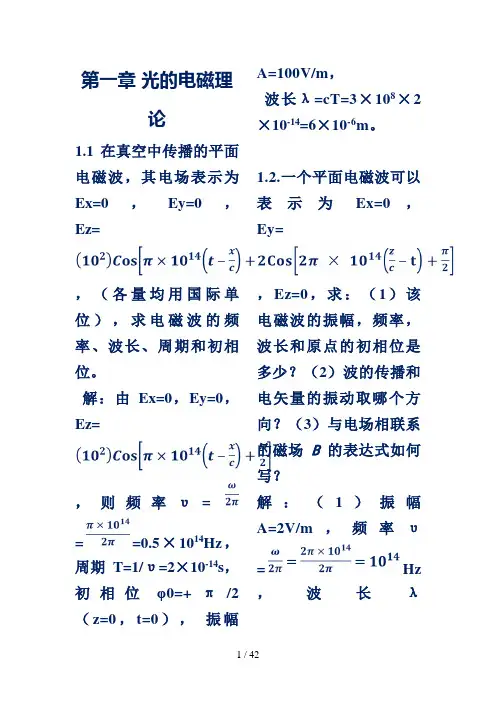 第一章 光的电磁理
论
1.1 在真空中传播的平面
电磁波，其电场表示为
Ex=0，Ey=0，
Ez=
(10²)Cos[π×10¹⁴(t−x/c)+
，（各量均用国际单
位），求电磁波的频
率、波长、周期和初相
位。
解：由 Ex=0，Ey=0，
Ez=
(10²)Cos[π×10¹⁴(t−x/c)+
，则频率υ= ω/2π
= π×10¹⁴/2π =0.5×10¹⁴Hz，
周期 T=1/υ=2×10⁻¹⁴s，
初相位 φ0=+π/2
（z=0，t=0），振幅
A=100V/m，
波长λ=cT=3×10⁸×2
×10⁻¹⁴=6×10⁻⁶m。
1.2.一个平面电磁波可以
表示为 Ex=0，
Ey=
2Cos[2π × 10¹⁴(z/c−t)+π/2]
，Ez=0，求：（1）该
电磁波的振幅，频率，
波长和原点的初相位是
多少？（2）波的传播和
电矢量的振动取哪个方
向？（3）与电场相联系
的磁场 B 的表达式如何
写？
解：（1）振幅
A=2V/m，频率υ
= ω/2π = 2π×10¹⁴/2π = 10¹⁴ Hz
，波长λ
1 / 42